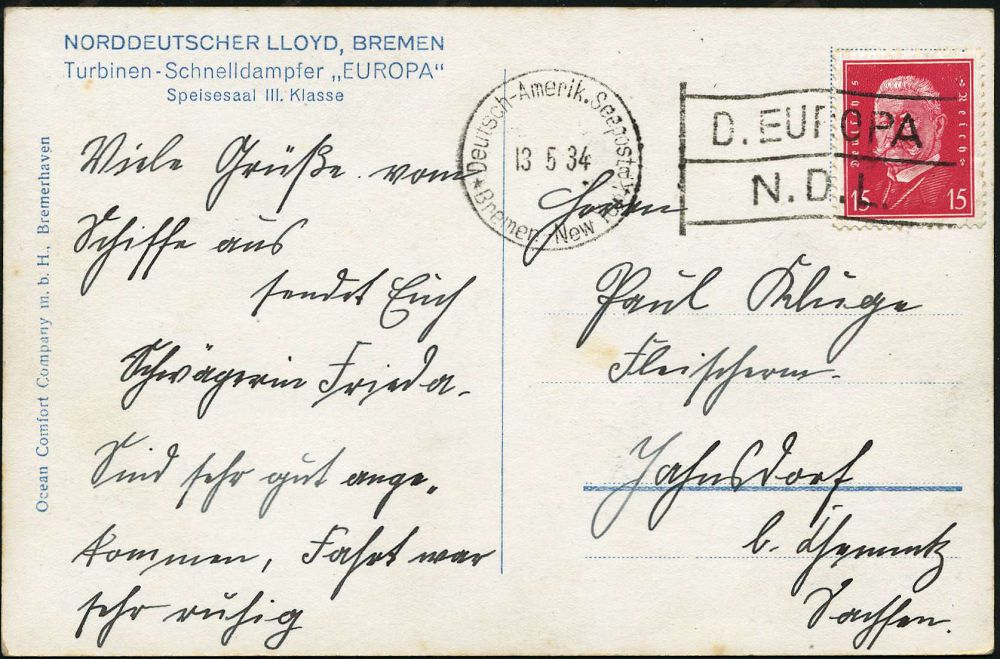 NORDDEUTSCHER LLOYD, BREMEN
Turbinen-Schnelldampfer „EUROPA"
Speisesaal III. Klasse
Ocean Comfort Company m. b. H., Bremerhaven
Viele Grüße vom
Schiffe aus
sendet Euch
Schwägerin Frieda.
Sind sehr gut ange-
kommen, Fahrt war
sehr ruhig
Deutsch-Amerik. Seepost
13 5 34
Bremen New York
D. EUROPA
N.D.L.
Deutsches Reich
15 15
Herrn
Paul Kluge
Fleischerm.
Jahnsdorf
b. Chemnitz
Sachsen.